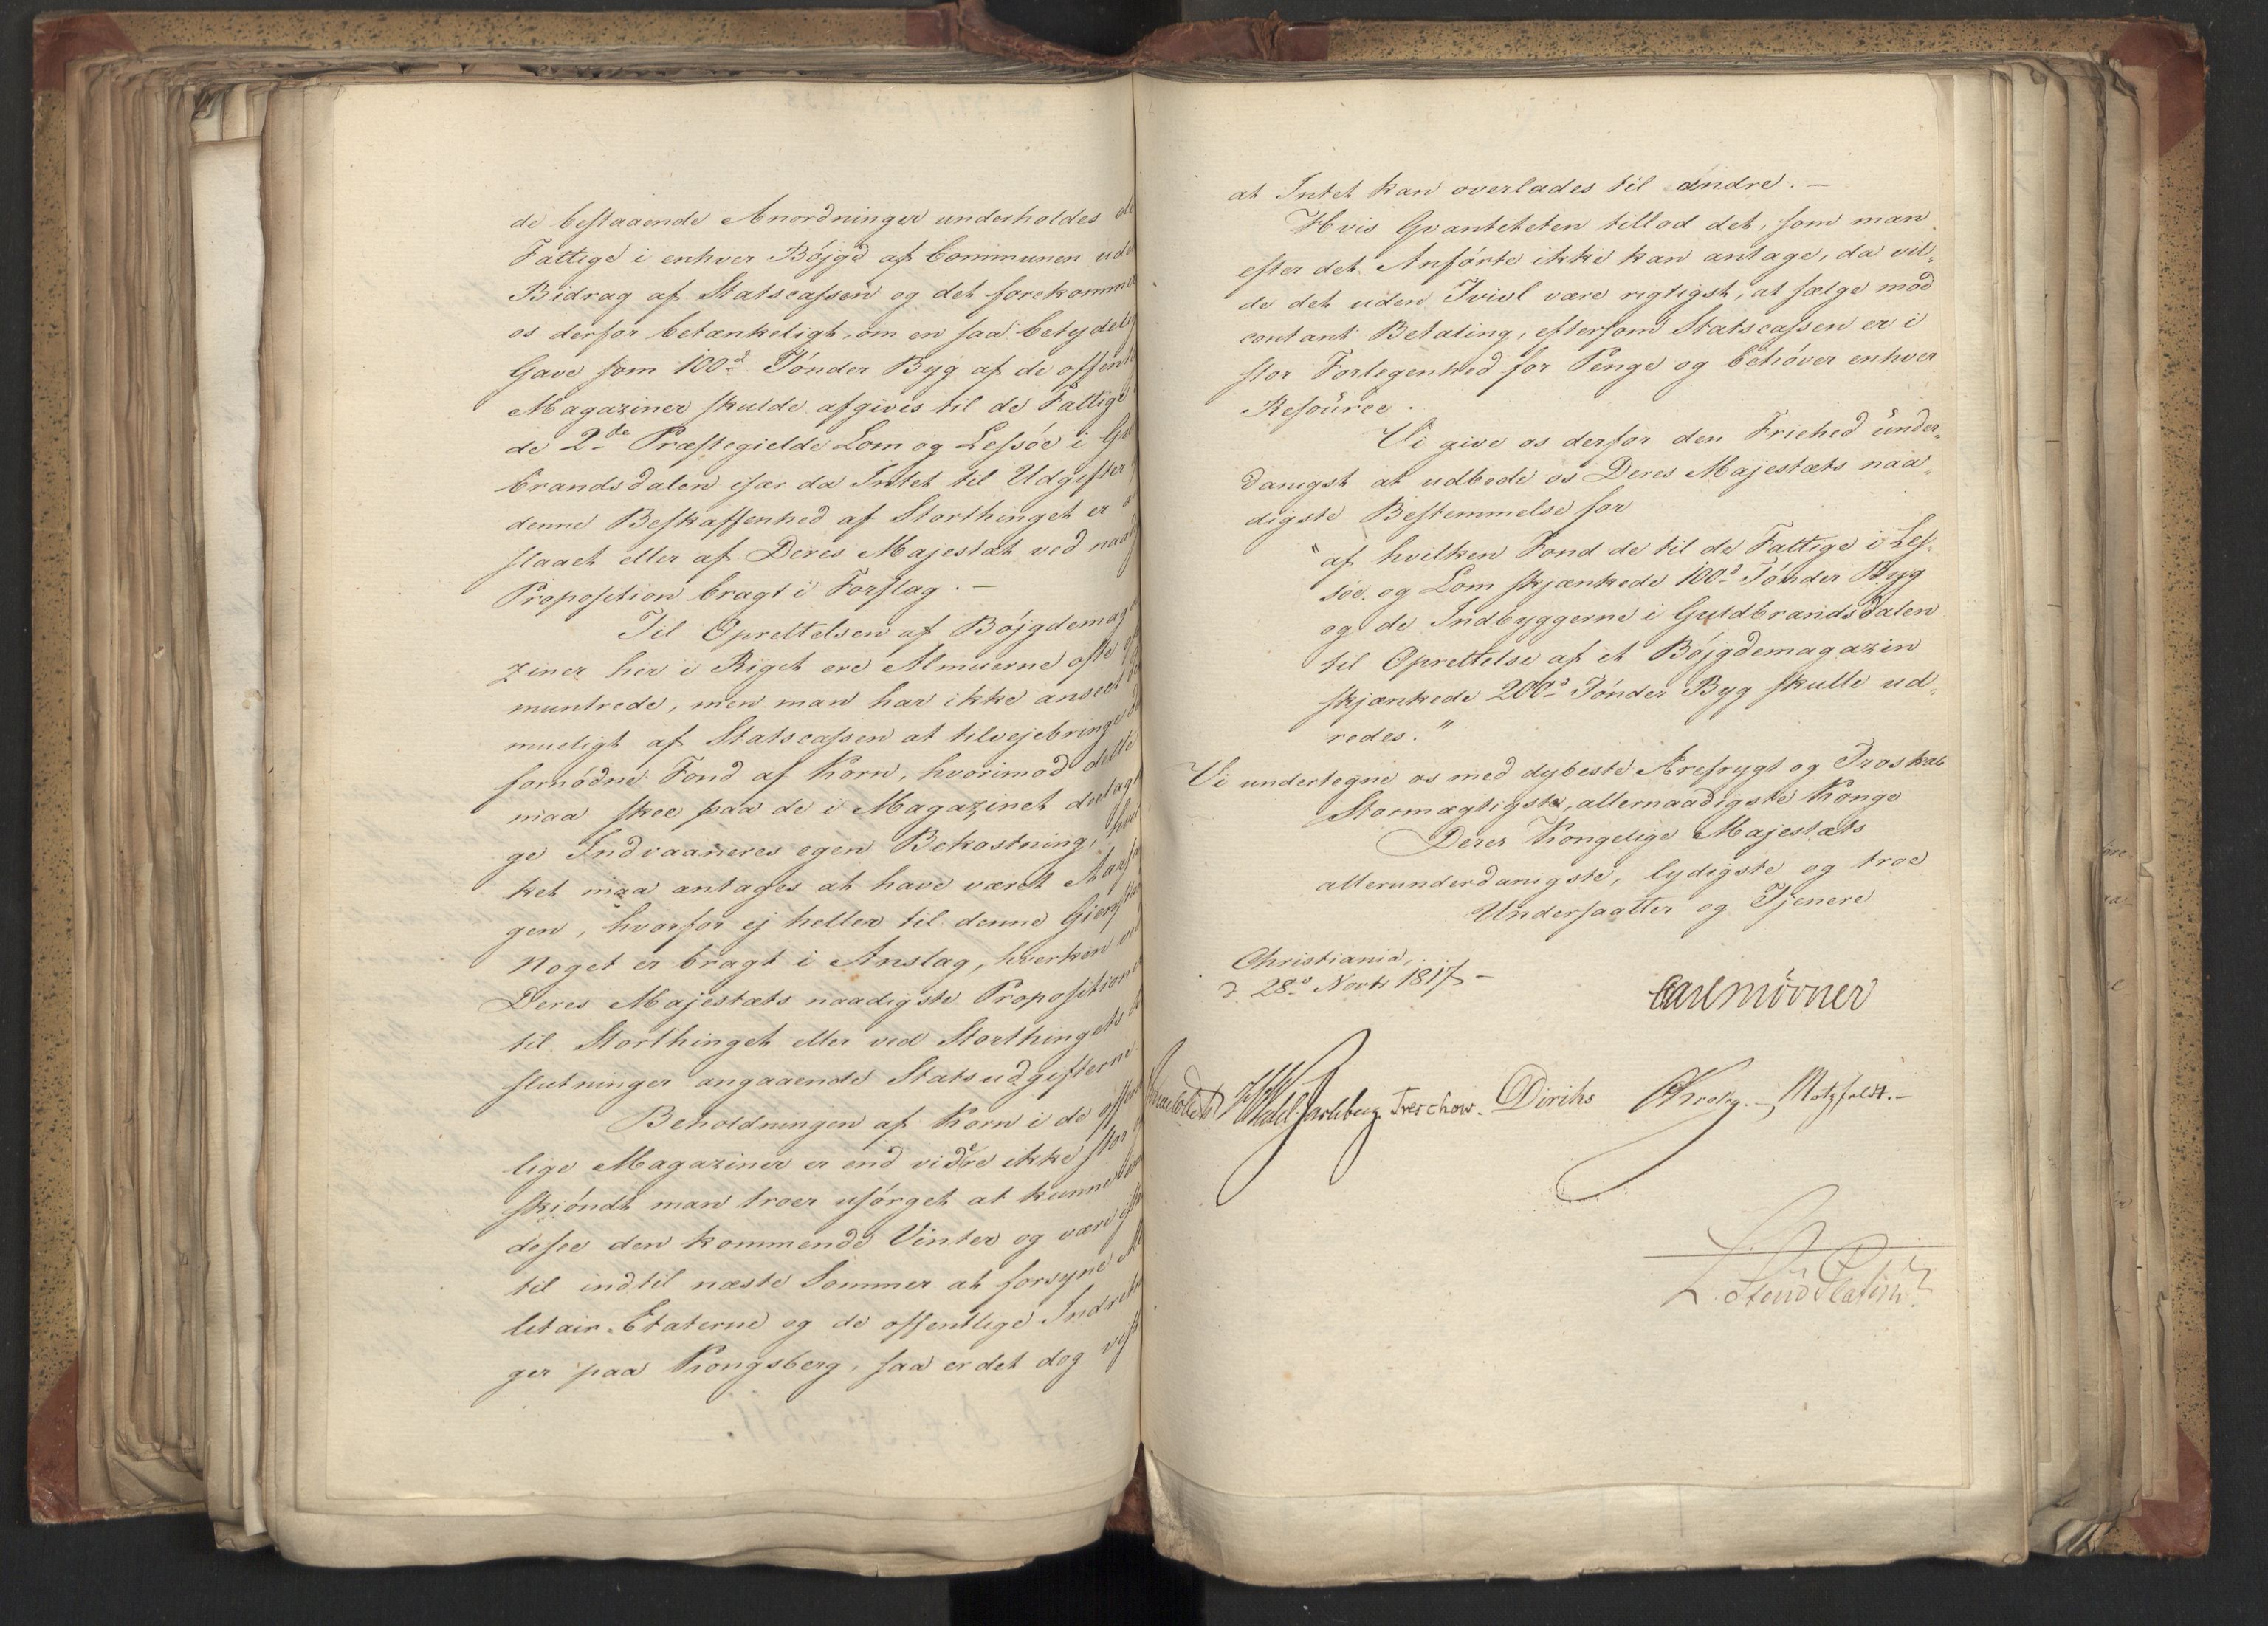 de bestaaende Anordninger underholdes de
Fattige i enhver Böjgd af Communen ude
Bidrag af Statscassen og det forekommer
os derfor betænkeligt, om en saa betydelig
Gave som 100de Tönder Byg af de offent
Magaziner skulde afgives til de Fattige
de 2de Præstegielde Lom og Lessöe i Gul
brandsdalen især da Intet til Udgifter
denne Beskaffenhed af Storthinget er
staaet eller af Deres Majestæt ved naad
Proposition bragt i Forslag. —
Til Oprettelsen af Böjgdemaga
ziner her i Riget ere Almuerne ofte
muntrede, men man har ikke anseet
mueligt af Statscassen at tilvejebringe
fornödne Fond af Korn, hvorimod dette
maa skee paa de i Magazinet deelagt
ge Indvaaneres egen Bekostning, hvil
ket maa antages at have været Aarsa
gen, hvorfor ej heller til denne Gienst
Noget er bragt i Anslag, hverken ved
Deres Majestæts naadigste Proposition
til Storthinget eller ved Storthingets
slutninger angaaende Statsudgifterne.
Beholdningen af Korn i de offent
lige Magaziner er end videre ikke stor
skiöndt man troer usörget at kunne im
desee den kommende Vinter og være
til indtil næste Sommer at forsyne Mi
litair-Etaterne og de offentlige Indret
ger paa Kongsberg, saa er det dog vist
at Intet kan overlades til andre. —
Hvis Qvantiteten tillod det, som man
efter det Anförte ikke kan antage, da vil„
de det uden Tvivl være rigtigst, at sælge mod
contant Betaling, eftersom Statscassen er i
stor Forlegenhed for Penge og behöver enhver
Resource.
Vi give os derfor den Friehed under„
danigst at udbede os Deres Majestæts naa„
digste Bestemmelse for
"af hvilken Fond de til de Fattige i Les„
söe og Lom skjænkede 100de Tönder Byg
og de Indbyggerne i Guldbrandsdalen
til Oprettelse af et Böjgdemagazin
skjænkede 200de Tönder Byg skulle ud„
redes."
Vi undertegne os med dybeste Ærefrygt og Troskab
Stormægtigste, allernaadigste Konge
Deres Kongelige Majestæts
allerunderdanigste, lydigste og troe
Undersaatter og Tjenere
Christiania,
d. 28de Novbr 1817 —
Carl Mörner
Wedel Jarlsberg. Treschow. Diriks Krohg. — Motzfeldt. —